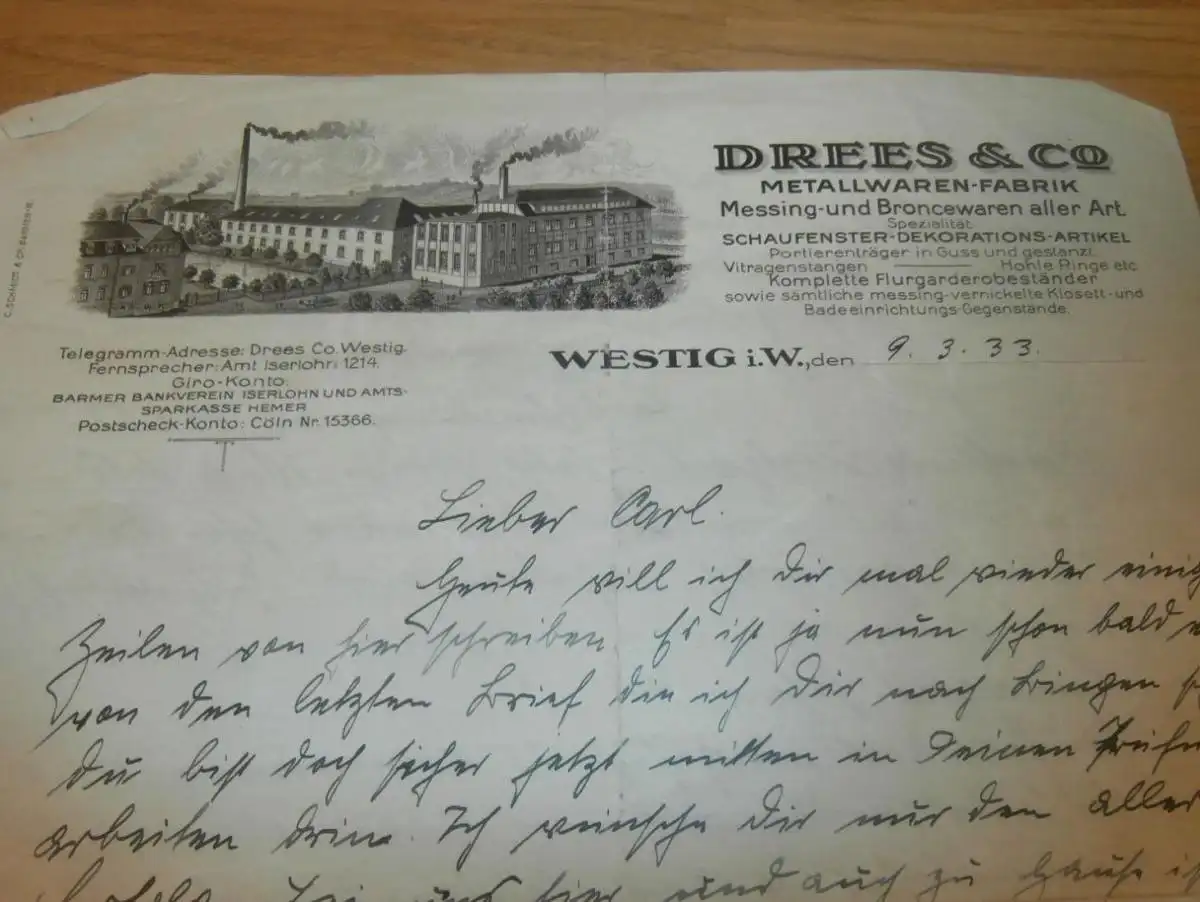 DREES & CO
METALLWAREN-FABRIK
Messing-und Broncewaren aller Art.
Spezialität
SCHAUFENSTER-DEKORATIONS-ARTIKEL
Portierenträger in Guss und gestanzt.
Vitragenstangen Hohle Ringe etc.
Komplette Flurgarderobeständer
sowie sämtliche messing-vernickelte Klosett-und
Badeeinrichtungs-Gegenstände.
Telegramm-Adresse: Drees Co. Westig.
Fernsprecher: Amt Iserlohn 1214.
Giro-Konto:
BARMER BANKVEREIN ISERLOHN UND AMTS-
SPARKASSE HEMER
Postscheck-Konto: Cöln Nr. 15366.
WESTIG i.W., den 9. 3. 33.
Lieber Carl.
Heute will ich Dir mal wieder einig
Zeilen von hier schreiben. Es ist ja nun schon bald
von den letzten Brief die ich Dir nach Bingen
Du bist doch sicher jetzt mitten in Deinen Prüfu
arbeiten drin. Ich wünsche Dir nur den aller
uns hier und auch zu Hause